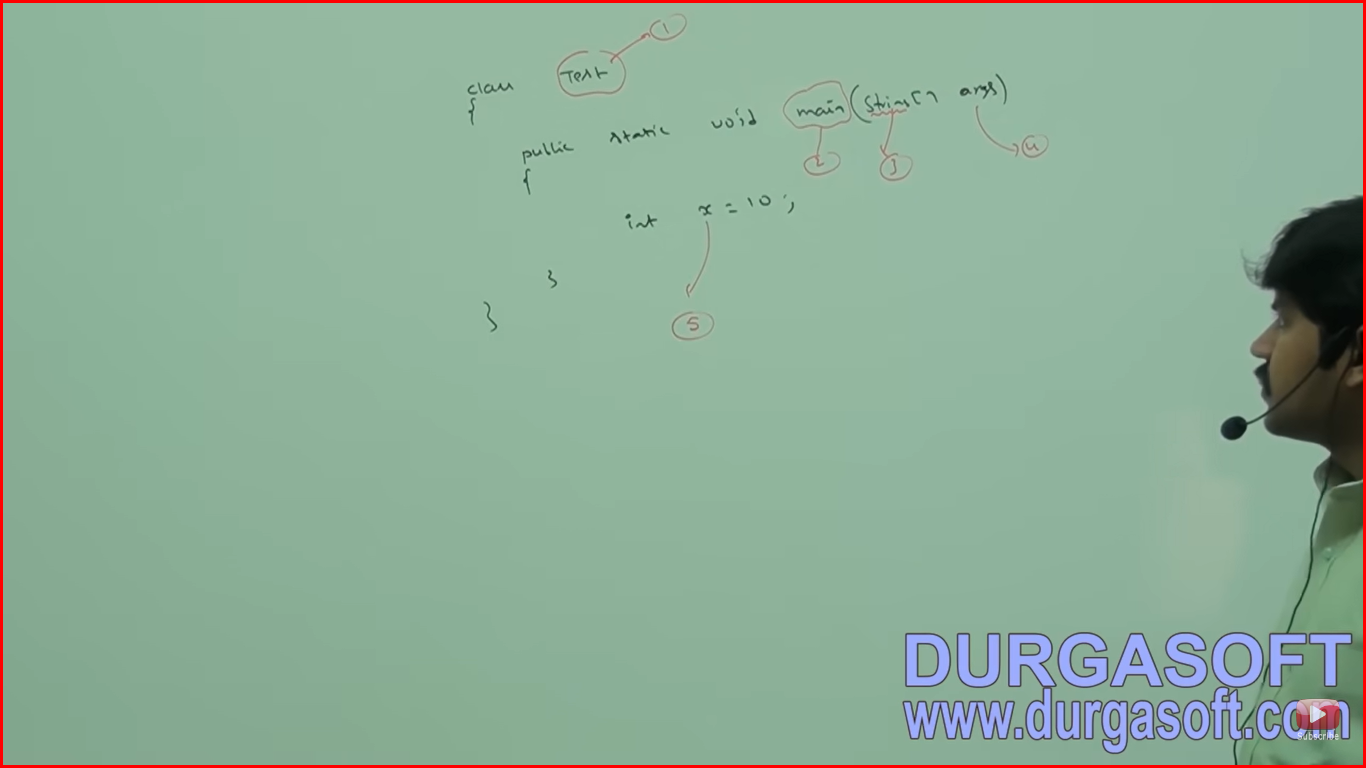 1
class Test
{
public static void main(String[] args)
2 3 4
{
int x = 10;
}
}
5
DURGASOFT
www.durgasoft.com
Subscribe